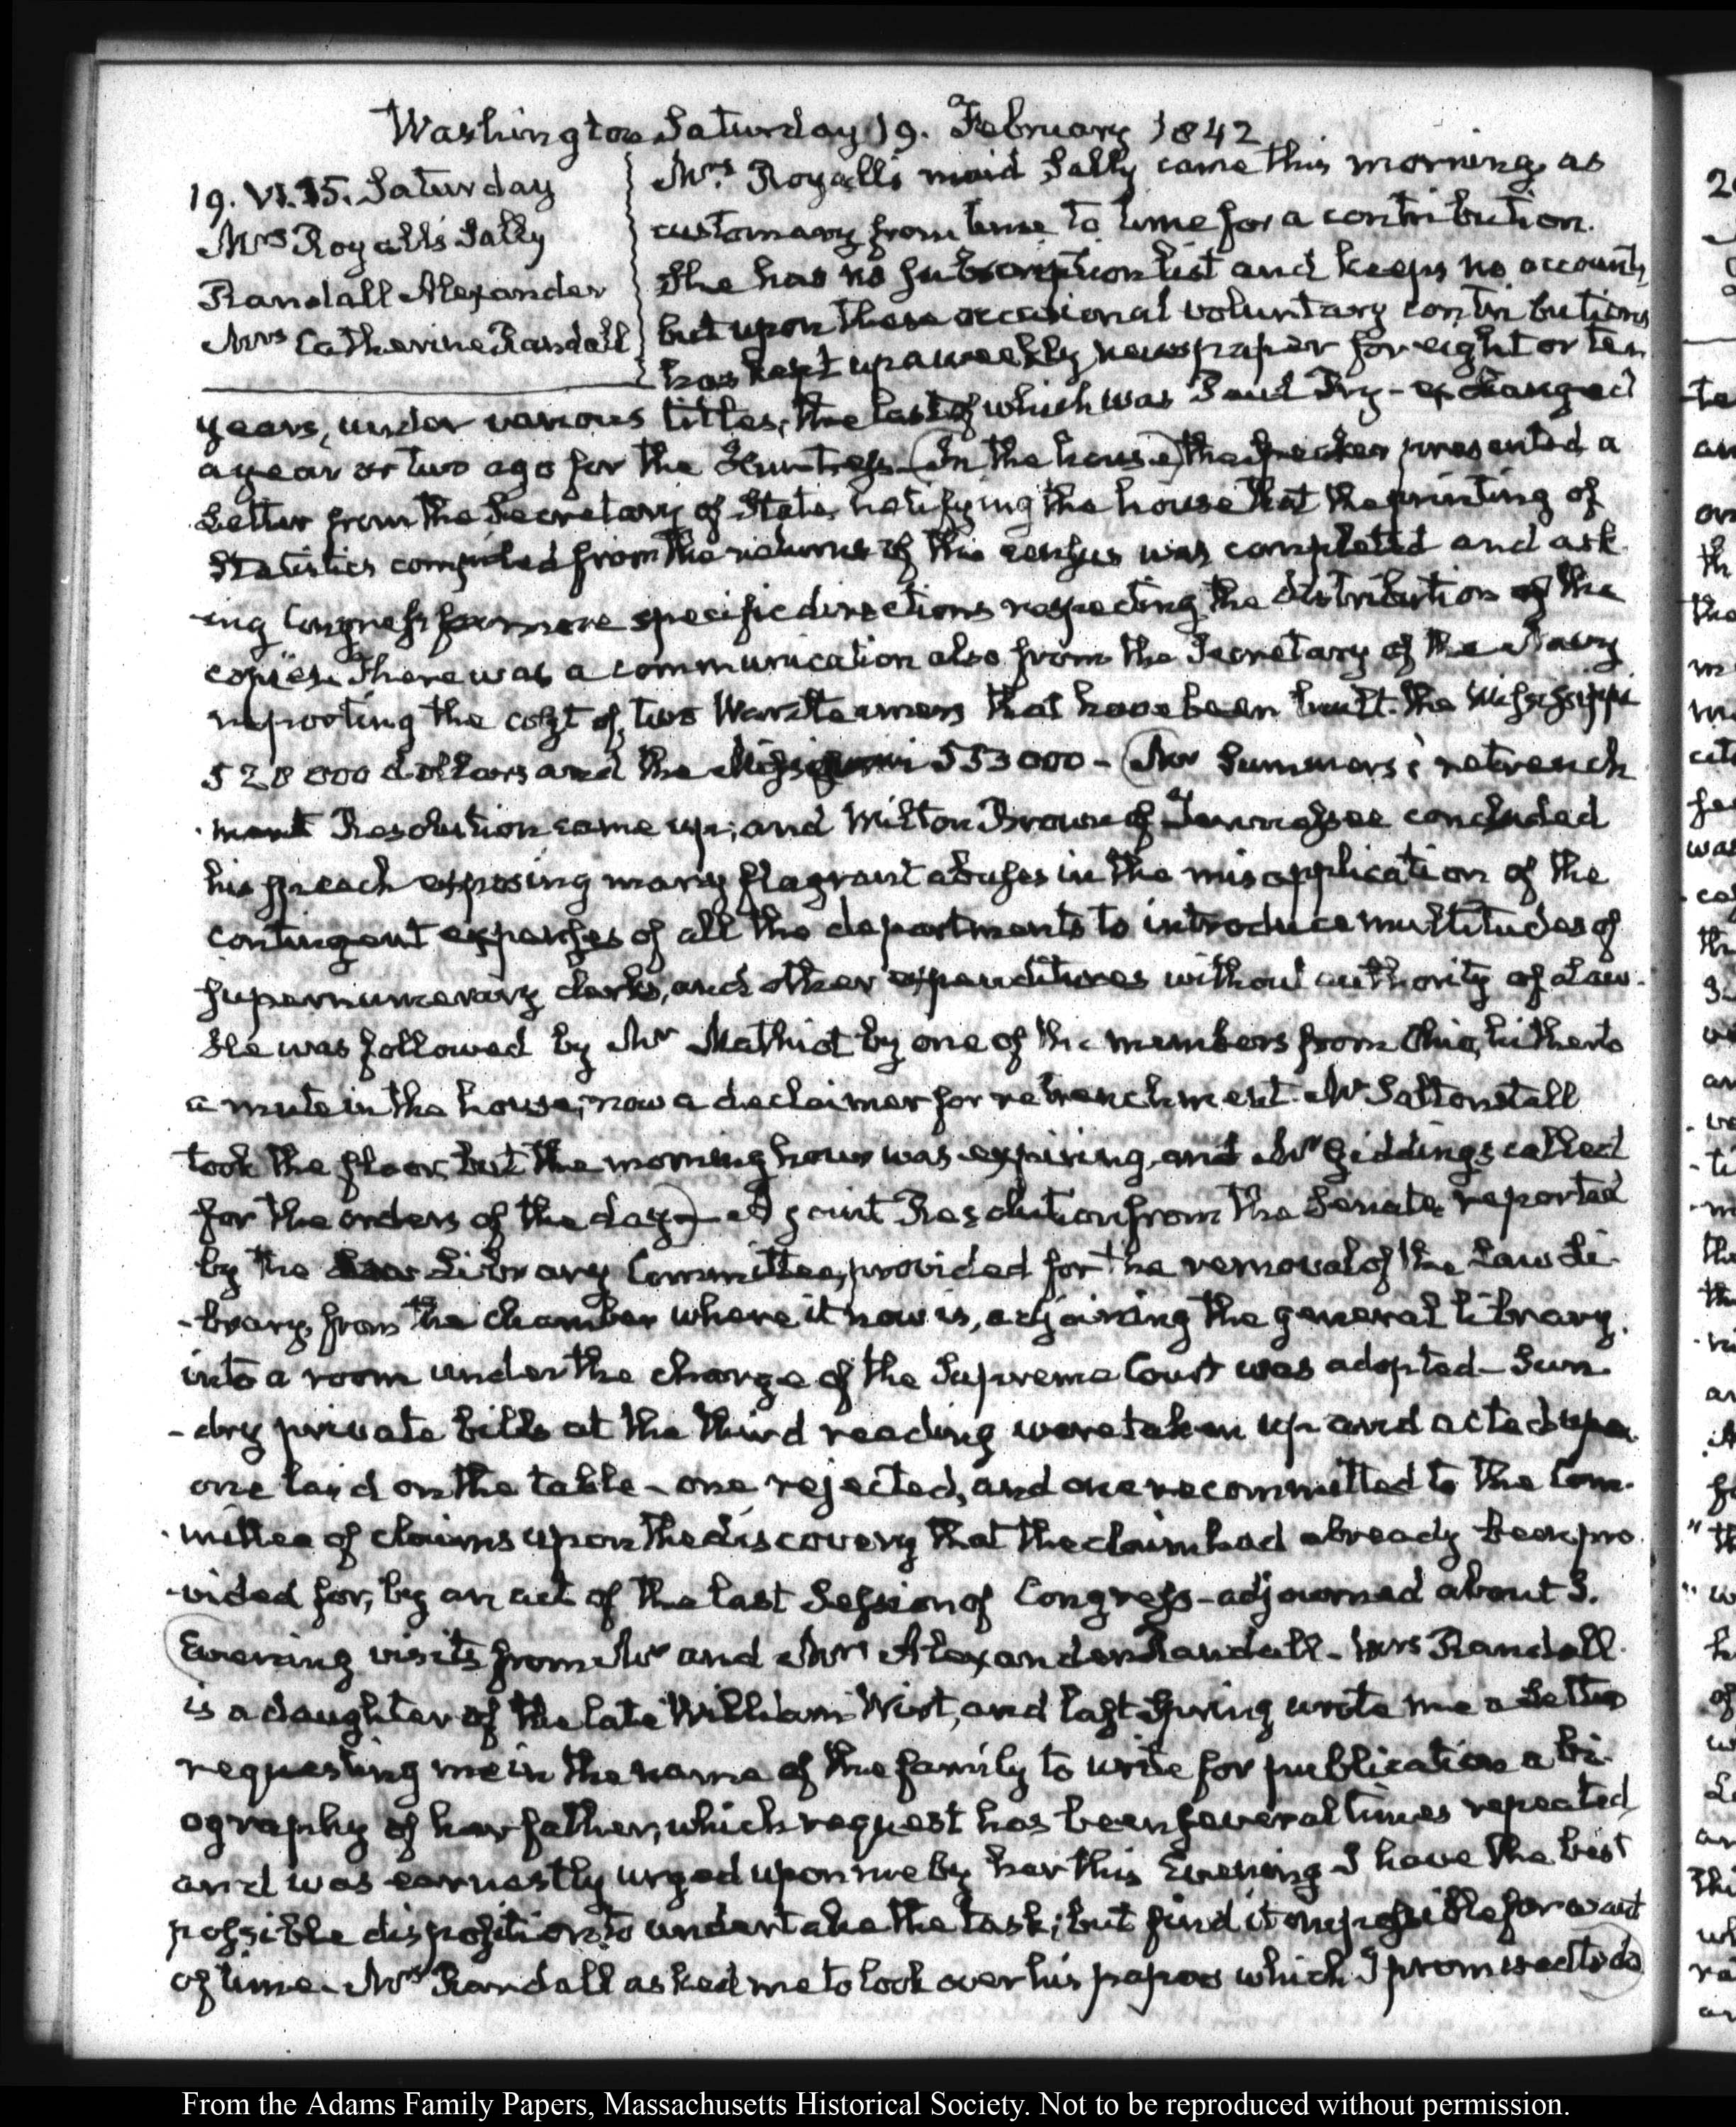 Washington Saturday 19. February 1842
19. VI. 15. Saturday
Mrs Royall's Sally
Randall Alexander
Mrs Catherine Randall
Mrs Royall's maid Sally came this morning as
customary from time to time for a contribution.
She has no subscription list and keeps no accounts,
but upon these occasional voluntary contributions
has kept up a weekly newspaper for eight or ten
years, under various titles, the last of which was Paul Pry - exchanged
a year or two ago for the Huntress. (In the house) the Speaker presented a
Letter from the Secretary of State, notifying the house that the printing of
Statistics compiled from the returns of the census was completed and ask-
-ing Congress for more specific directions respecting the distribution of the
copies. There was a communication also from the Secretary of the Navy
reporting the cost of two War steamers that have been built. the Mississippi
520 000 dollars and the Missouri 553 000 - (Mr Summers's retrench
-ment Resolution came up; and Milton Brown of Tennessee concluded
his speech exposing many flagrant abuses in the misapplication of the
contingent expenses of all the departments to introduce multitudes of
supernumerary clerks, and other expenditures without authority of Law.
He was followed by Mr Mathiot by one of the members from Ohio, hitherto
a mute in the house, now a declaimer for retrenchment. Mr Saltonstall
took the floor, but the morning hour was expiring, and Mr Giddings called
for the orders of the day) - A joint Resolution from the Senate, reported
by the Library Committee, provided for the removal of the Law Li-
-brary, from the chamber where it now is, adjoining the general library,
into a room under the charge of the Supreme Court was adopted - Sun
-dry private bills at the third reading were taken up and acted upon
one laid on the table - one rejected, and one recommitted to the Com-
-mittee of claims upon the discovery that the claim had already been pro
-vided for, by an act of the last Session of Congress - adjourned about 3.
(Evening visits from Mr and Mrs Alexander Randall - Mrs Randall
is a daughter of the late William Wirt, and last Spring wrote me a Letter
requesting me in the name of the family to write for publication a bi-
ography of her father, which request has been several times repeated,
and was earnestly urged upon me by her this Evening. I have the best
possible disposition to undertake the task; but find it impossible for want
of time. Mrs Randall asked me to look over his papers which I promised to do)
From the Adams Family Papers, Massachusetts Historical Society. Not to be reproduced without permission.